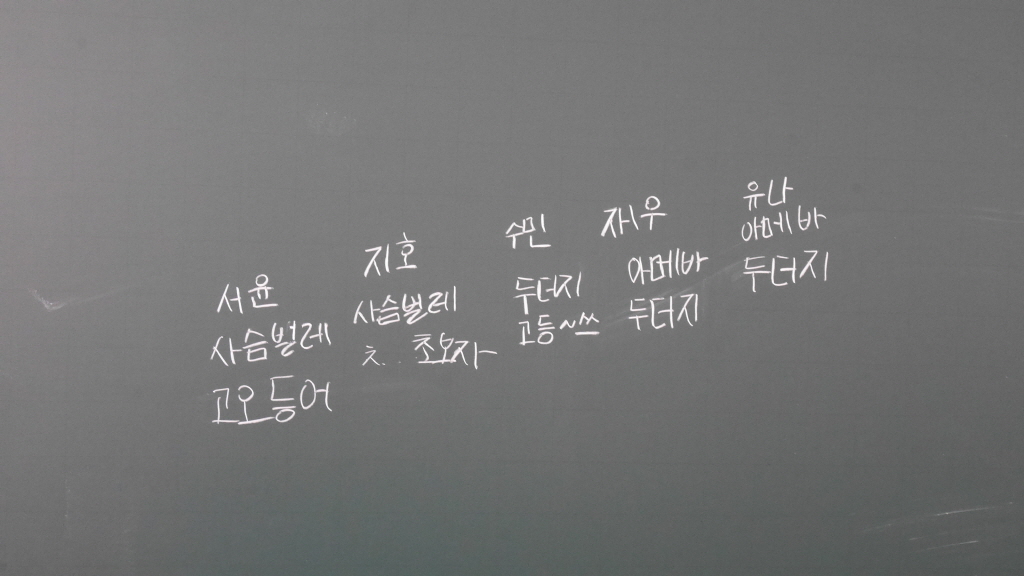 서윤
사슴벌레
고오등어
지호
사슴벌레
ㅊ.. 초보자
수민
두더지
고등~쓰
재우
아메바
두더지
유나
아메바
두더지